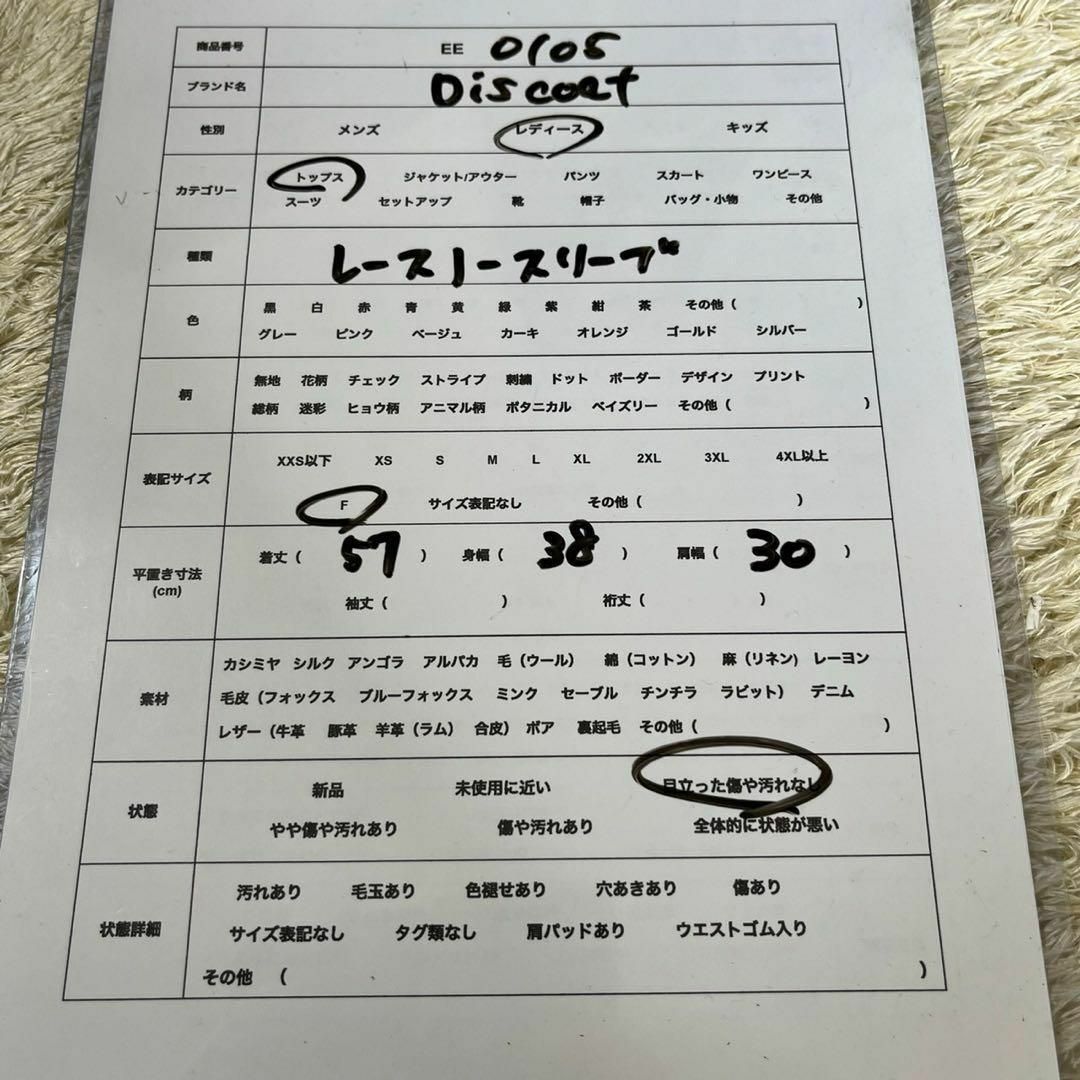 商品番号 EE 0105
ブランド名 Discoat
性別 メンズ レディース キッズ
カテゴリー トップス ジャケット/アウター パンツ スカート ワンピース
スーツ セットアップ 靴 帽子 バッグ・小物 その他
種類 レースノースリーブ
色 黒 白 赤 青 黄 緑 紫 紺 茶 その他( )
グレー ピンク ベージュ カーキ オレンジ ゴールド シルバー
柄 無地 花柄 チェック ストライプ 刺繍 ドット ボーダー デザイン プリント
総柄 迷彩 ヒョウ柄 アニマル柄 ボタニカル ペイズリー その他( )
表記サイズ XXS以下 XS S M L XL 2XL 3XL 4XL以上
F サイズ表記なし その他( )
平置き寸法 (cm) 着丈( 57 ) 身幅( 38 ) 肩幅( 30 )
袖丈( ) 裄丈( )
素材 カシミヤ シルク アンゴラ アルパカ 毛(ウール) 綿(コットン) 麻(リネン) レーヨン
毛皮(フォックス ブルーフォックス ミンク セーブル チンチラ ラビット) デニム
レザー(牛革 豚革 羊革(ラム) 合皮) ボア 裏起毛 その他( )
状態 新品 未使用に近い 目立った傷や汚れなし
やや傷や汚れあり 傷や汚れあり 全体的に状態が悪い
状態詳細 汚れあり 毛玉あり 色褪せあり 穴あきあり 傷あり
サイズ表記なし タグ類なし 肩パッドあり ウエストゴム入り
その他 ( )